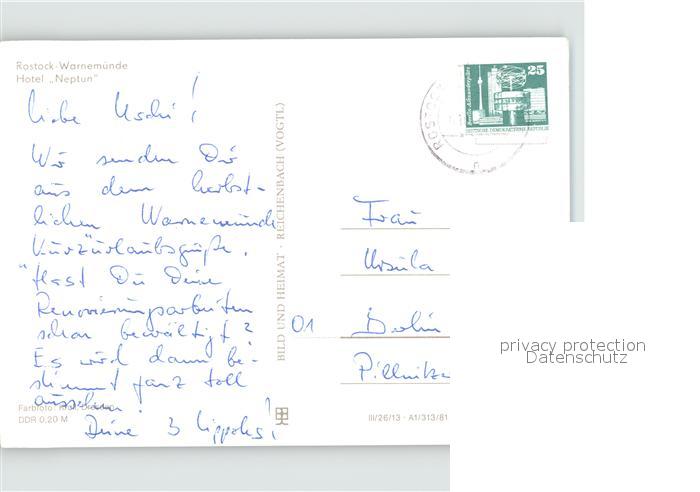 Rostock-Warnemünde
Hotel „Neptun"
liebe Uschi!
Wir senden Dir
aus dem herbst-
lichen Warnemünde
Kurz"urlaubsgrüße.
Hast Du Deine
Renovierungsarbeiten
schon bewältigt?
Es wird dann be-
stimmt ganz toll
aussehen!
Deine 3
Farbfoto:
DDR 0,20 M
BILD UND HEIMAT · REICHENBACH (VOGTL)
III/26/13 · A1/313/81
ROSTOCK
25
Berlin, Alexanderplatz
DEUTSCHE DEMOKRATISCHE REPUBLIK
Frau
Ursula
01 Berlin
Pillnitze
privacy protection
Datenschutz